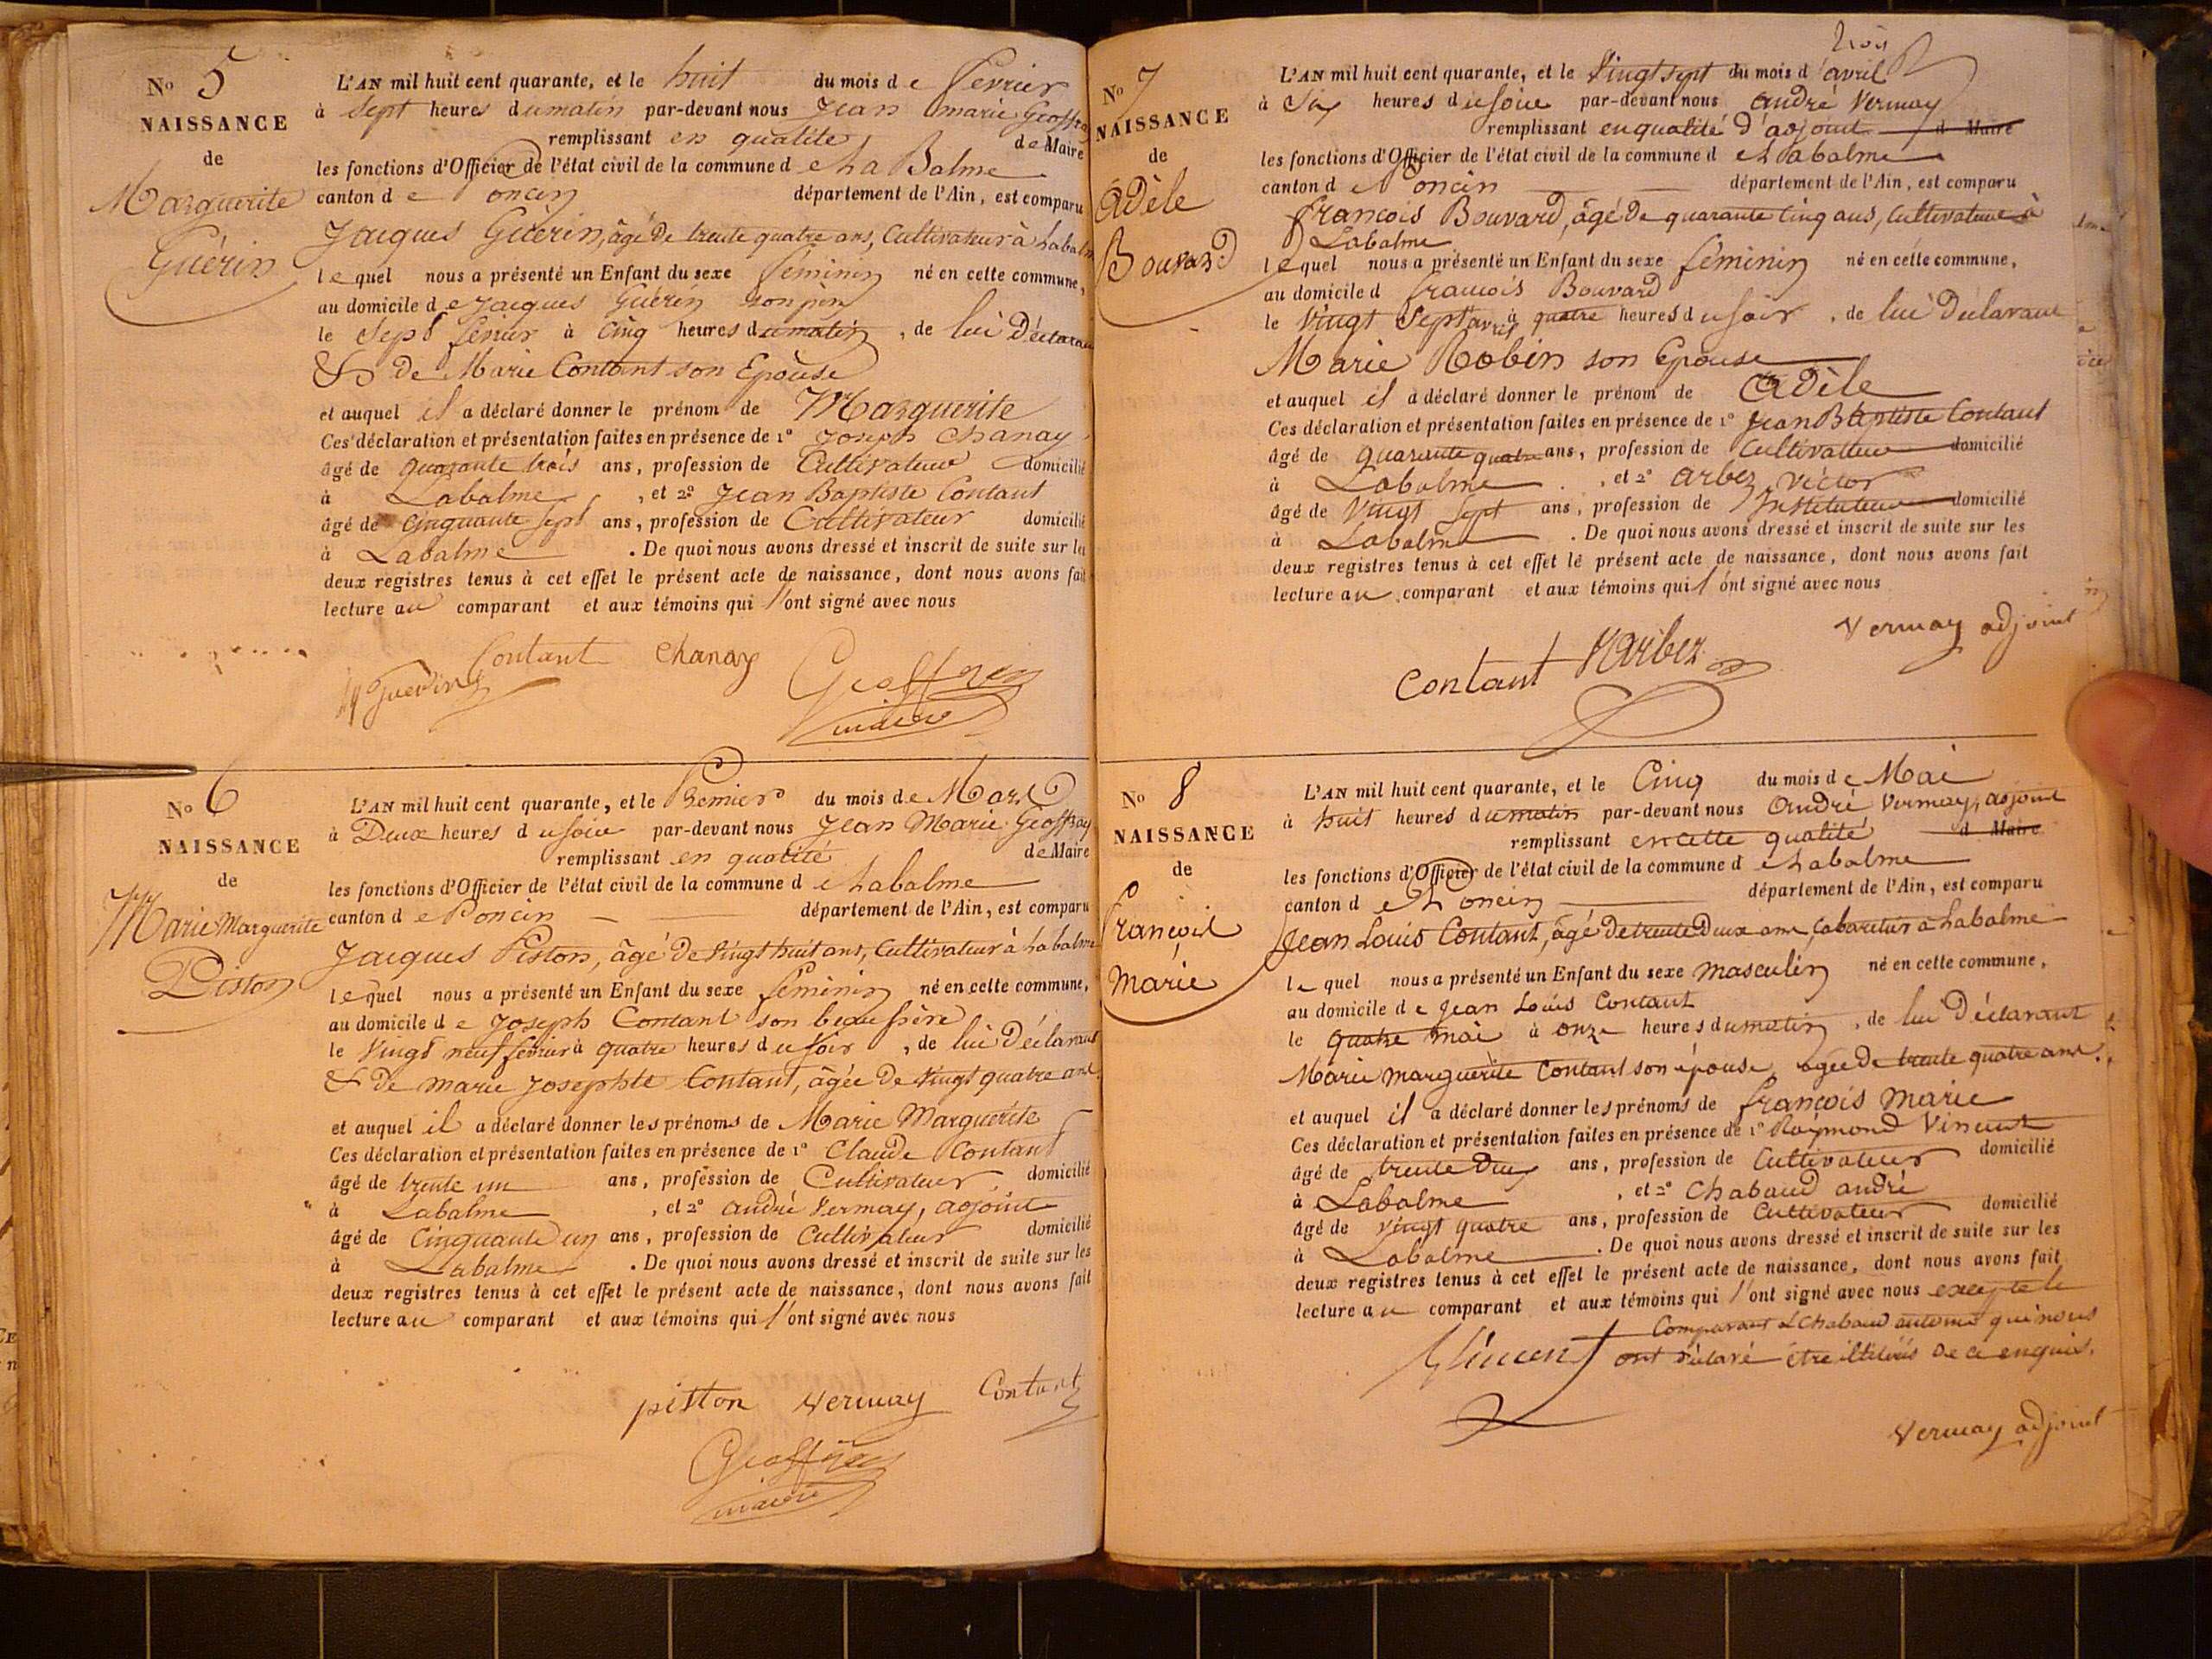 No 5
NAISSANCE
de
Marguerite
Guérin
L'AN mil huit cent quarante, et le huit du mois de fevrier
à Sept heures du matin par-devant nous Jean marie Geoffray
remplissant en qualité de Maire
les fonctions d'Officier de l'état civil de la commune de La Balme
canton de Poncin département de l'Ain, est comparu
Jacques Guérin, âgé De trente quatre ans, Cultivateur à Labalme
lequel nous a présenté un Enfant du sexe féminin né en cette commune,
au domicile de Jacques Guérin son père
le Sept fevrier à Cinq heures du matin, de lui Déclarant
& De Marie Contant son Epouse
et auquel il a déclaré donner le prénom de Marguerite
Ces déclaration et présentation faites en présence de 1º Joseph Chanay
âgé de quarante trois ans, profession de Cultivateur domicilié
à Labalme, et 2º Jean Baptiste Contant
âgé de cinquante sept ans, profession de Cultivateur domicilié
à Labalme. De quoi nous avons dressé et inscrit de suite sur les
deux registres tenus à cet effet le présent acte de naissance, dont nous avons fait
lecture au comparant et aux témoins qui l'ont signé avec nous
Contant Chanay
Guerin Geoffray
maire
No 6
NAISSANCE
de
Marie Marguerite
Piston
L'AN mil huit cent quarante, et le Premier du mois de Mars
à Deux heures du soir par-devant nous Jean Marie Geoffray
remplissant en qualité de Maire
les fonctions d'Officier de l'état civil de la commune de Labalme
canton de Poncin département de l'Ain, est comparu
Jacques Piston, âgé De Vingt huit ans, Cultivateur à Labalme
lequel nous a présenté un Enfant du sexe féminin né en cette commune,
au domicile de Joseph Contant son beau frère
le Vingt neuf fevrier à quatre heures du soir, de lui Déclarant
& de marie Josephte Contant, âgée De Vingt quatre ans.
et auquel il a déclaré donner les prénoms de Marie Marguerite
Ces déclaration et présentation faites en présence de 1º Claude Contant
âgé de trente un ans, profession de Cultivateur domicilié
à Labalme, et 2º andré Vermay, adjoint
âgé de Cinquante un ans, profession de Cultivateur domicilié
à Labalme. De quoi nous avons dressé et inscrit de suite sur les
deux registres tenus à cet effet le présent acte de naissance, dont nous avons fait
lecture au comparant et aux témoins qui l'ont signé avec nous
piston Vermay Contant
Geoffray
maire
trois
No 7
NAISSANCE
de
Adèle
Bouvard
L'AN mil huit cent quarante, et le Vingt sept du mois d'avril
à Six heures du soir par-devant nous andré Vermay
remplissant en qualité D'adjoint d Maire
les fonctions d'Officier de l'état civil de la commune de Labalme
canton de Poncin département de l'Ain, est comparu
François Bouvard, âgé De quarante Cinq ans, Cultivateur à
Labalme
lequel nous a présenté un Enfant du sexe féminin né en cette commune,
au domicile d françois Bouvard
le Vingt Sept avril à quatre heures du soir, de lui Déclarant
Marie Robin son Epouse
et auquel il a déclaré donner le prénom de Adèle
Ces déclaration et présentation faites en présence de 1º Jean Baptiste Contant
âgé de quarante quatre ans, profession de Cultivateur domicilié
à Labalme, et 2º arbez victor
âgé de Vingt sept ans, profession de Instituteur domicilié
à Labalme. De quoi nous avons dressé et inscrit de suite sur les
deux registres tenus à cet effet le présent acte de naissance, dont nous avons fait
lecture au comparant et aux témoins qui l'ont signé avec nous
Vermay adjoint
Contant Varbez
No 8
NAISSANCE
de
François
Marie
L'AN mil huit cent quarante, et le Cinq du mois de Mai
à huit heures du matin par-devant nous André Vermay, adjoint
remplissant en cette qualité d Maire
les fonctions d'Officier de l'état civil de la commune de Labalme
canton de Poncin département de l'Ain, est comparu
Jean Louis Contant, âgé De trente Deux ans, Cabaretier à Labalme
lequel nous a présenté un Enfant du sexe masculin né en cette commune,
au domicile de Jean Louis Contant
le quatre mai à onze heures du matin, de lui Déclarant
Marie marguerite Contant son épouse, agée De trente quatre ans.
et auquel il a déclaré donner les prénoms de françois marie
Ces déclaration et présentation faites en présence de 1º Raymond Vincent
âgé de trente Deux ans, profession de Cultivateur domicilié
à Labalme, et 2º Chabaud andré
âgé de vingt quatre ans, profession de Cultivateur domicilié
à Labalme. De quoi nous avons dressé et inscrit de suite sur les
deux registres tenus à cet effet le présent acte de naissance, dont nous avons fait
lecture au comparant et aux témoins qui l'ont signé avec nous excepté le
Comparant & Chabaud qui nous
Vincent ont déclaré être illitérés De ce enquis.
Vermay adjoint